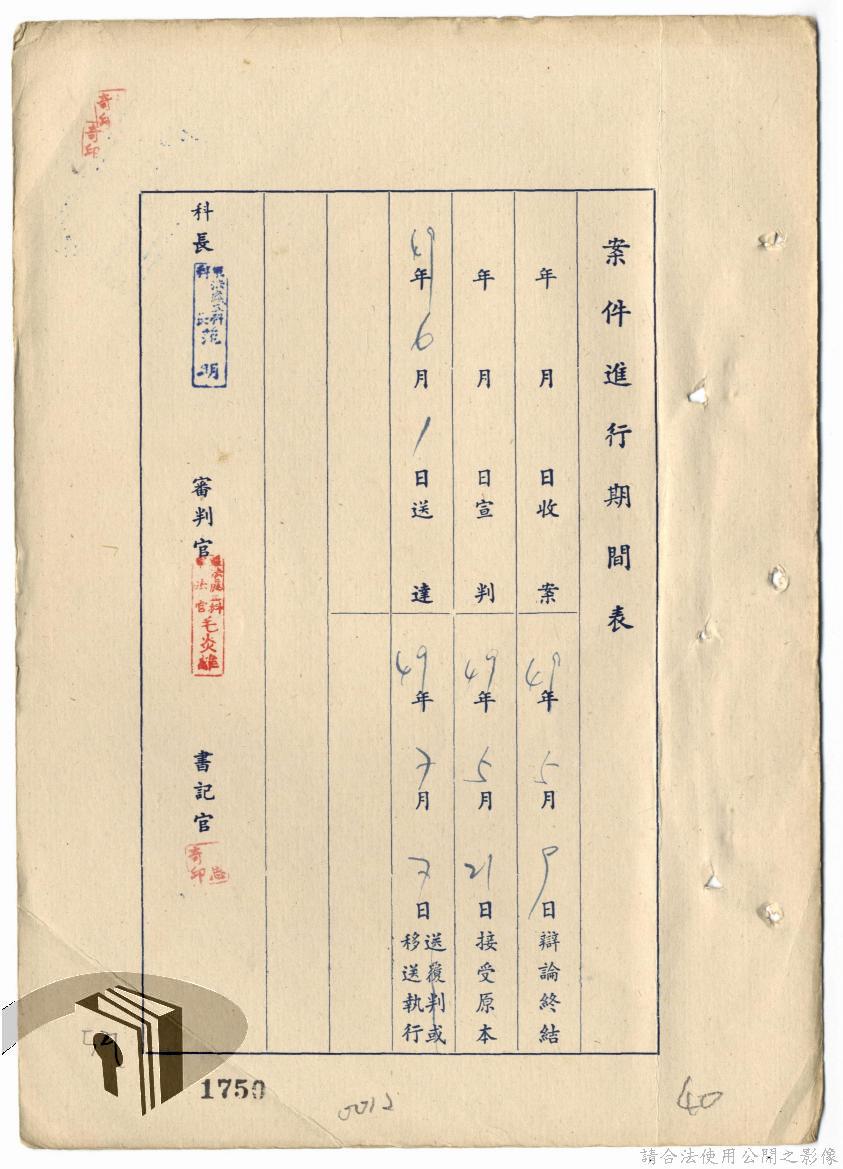 案件進行期間表
年 月 日收案
49年5月9日辯論終結
年 月 日宣判
49年5月21日接受原本
49年6月1日送達
49年7月7日送覆判或移送執行
科長
范明
審判官
法官
毛炎雄
書記官
奇印
奇印
奇印
1750
0012
40
請合法使用公開之影像